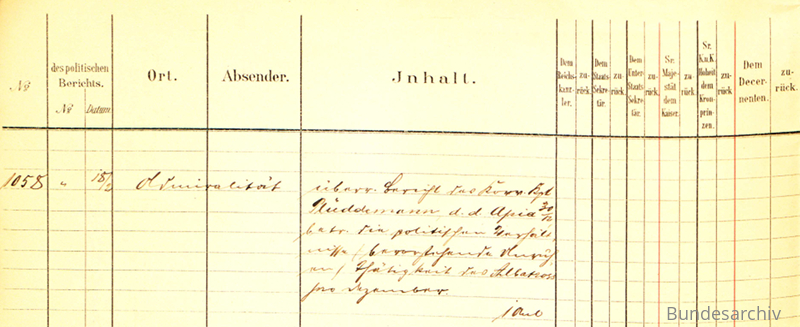 №
des politischen
Berichts.
№ Datum.
Ort.
Absender.
Inhalt.
Dem
Reichs-
kanz-
ler.
zu-
rück.
Dem
Staats-
Sekre-
tär.
zu-
rück.
Dem
Unter-
Staats-
Sekre-
tär.
zu-
rück.
Sr.
Maje-
stät
dem
Kaiser.
zu-
rück
Sr.
K.u.K.
Hoheit
dem
Kron-
prin-
zen.
zu-
rück
Dem
Decer-
nenten.
zu-
rück.
1058 " 18/2 Admiralität überr. Bericht des Korv. Kpt
Plüddemann d.d. Apia 30/12
betr. die politischen Verhält-
nisse / bevorstehende Unruh-
en / Thätigkeit des Albatross
pro Dezember.
Bundesarchiv